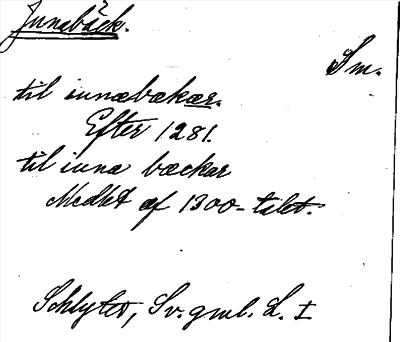 Junabäck.
Sm.
til iunæbækær.
Efter 1281.
til iuna bæckar
Medlet af 1300-talet.
Schlyter, Sv. gml. L. I